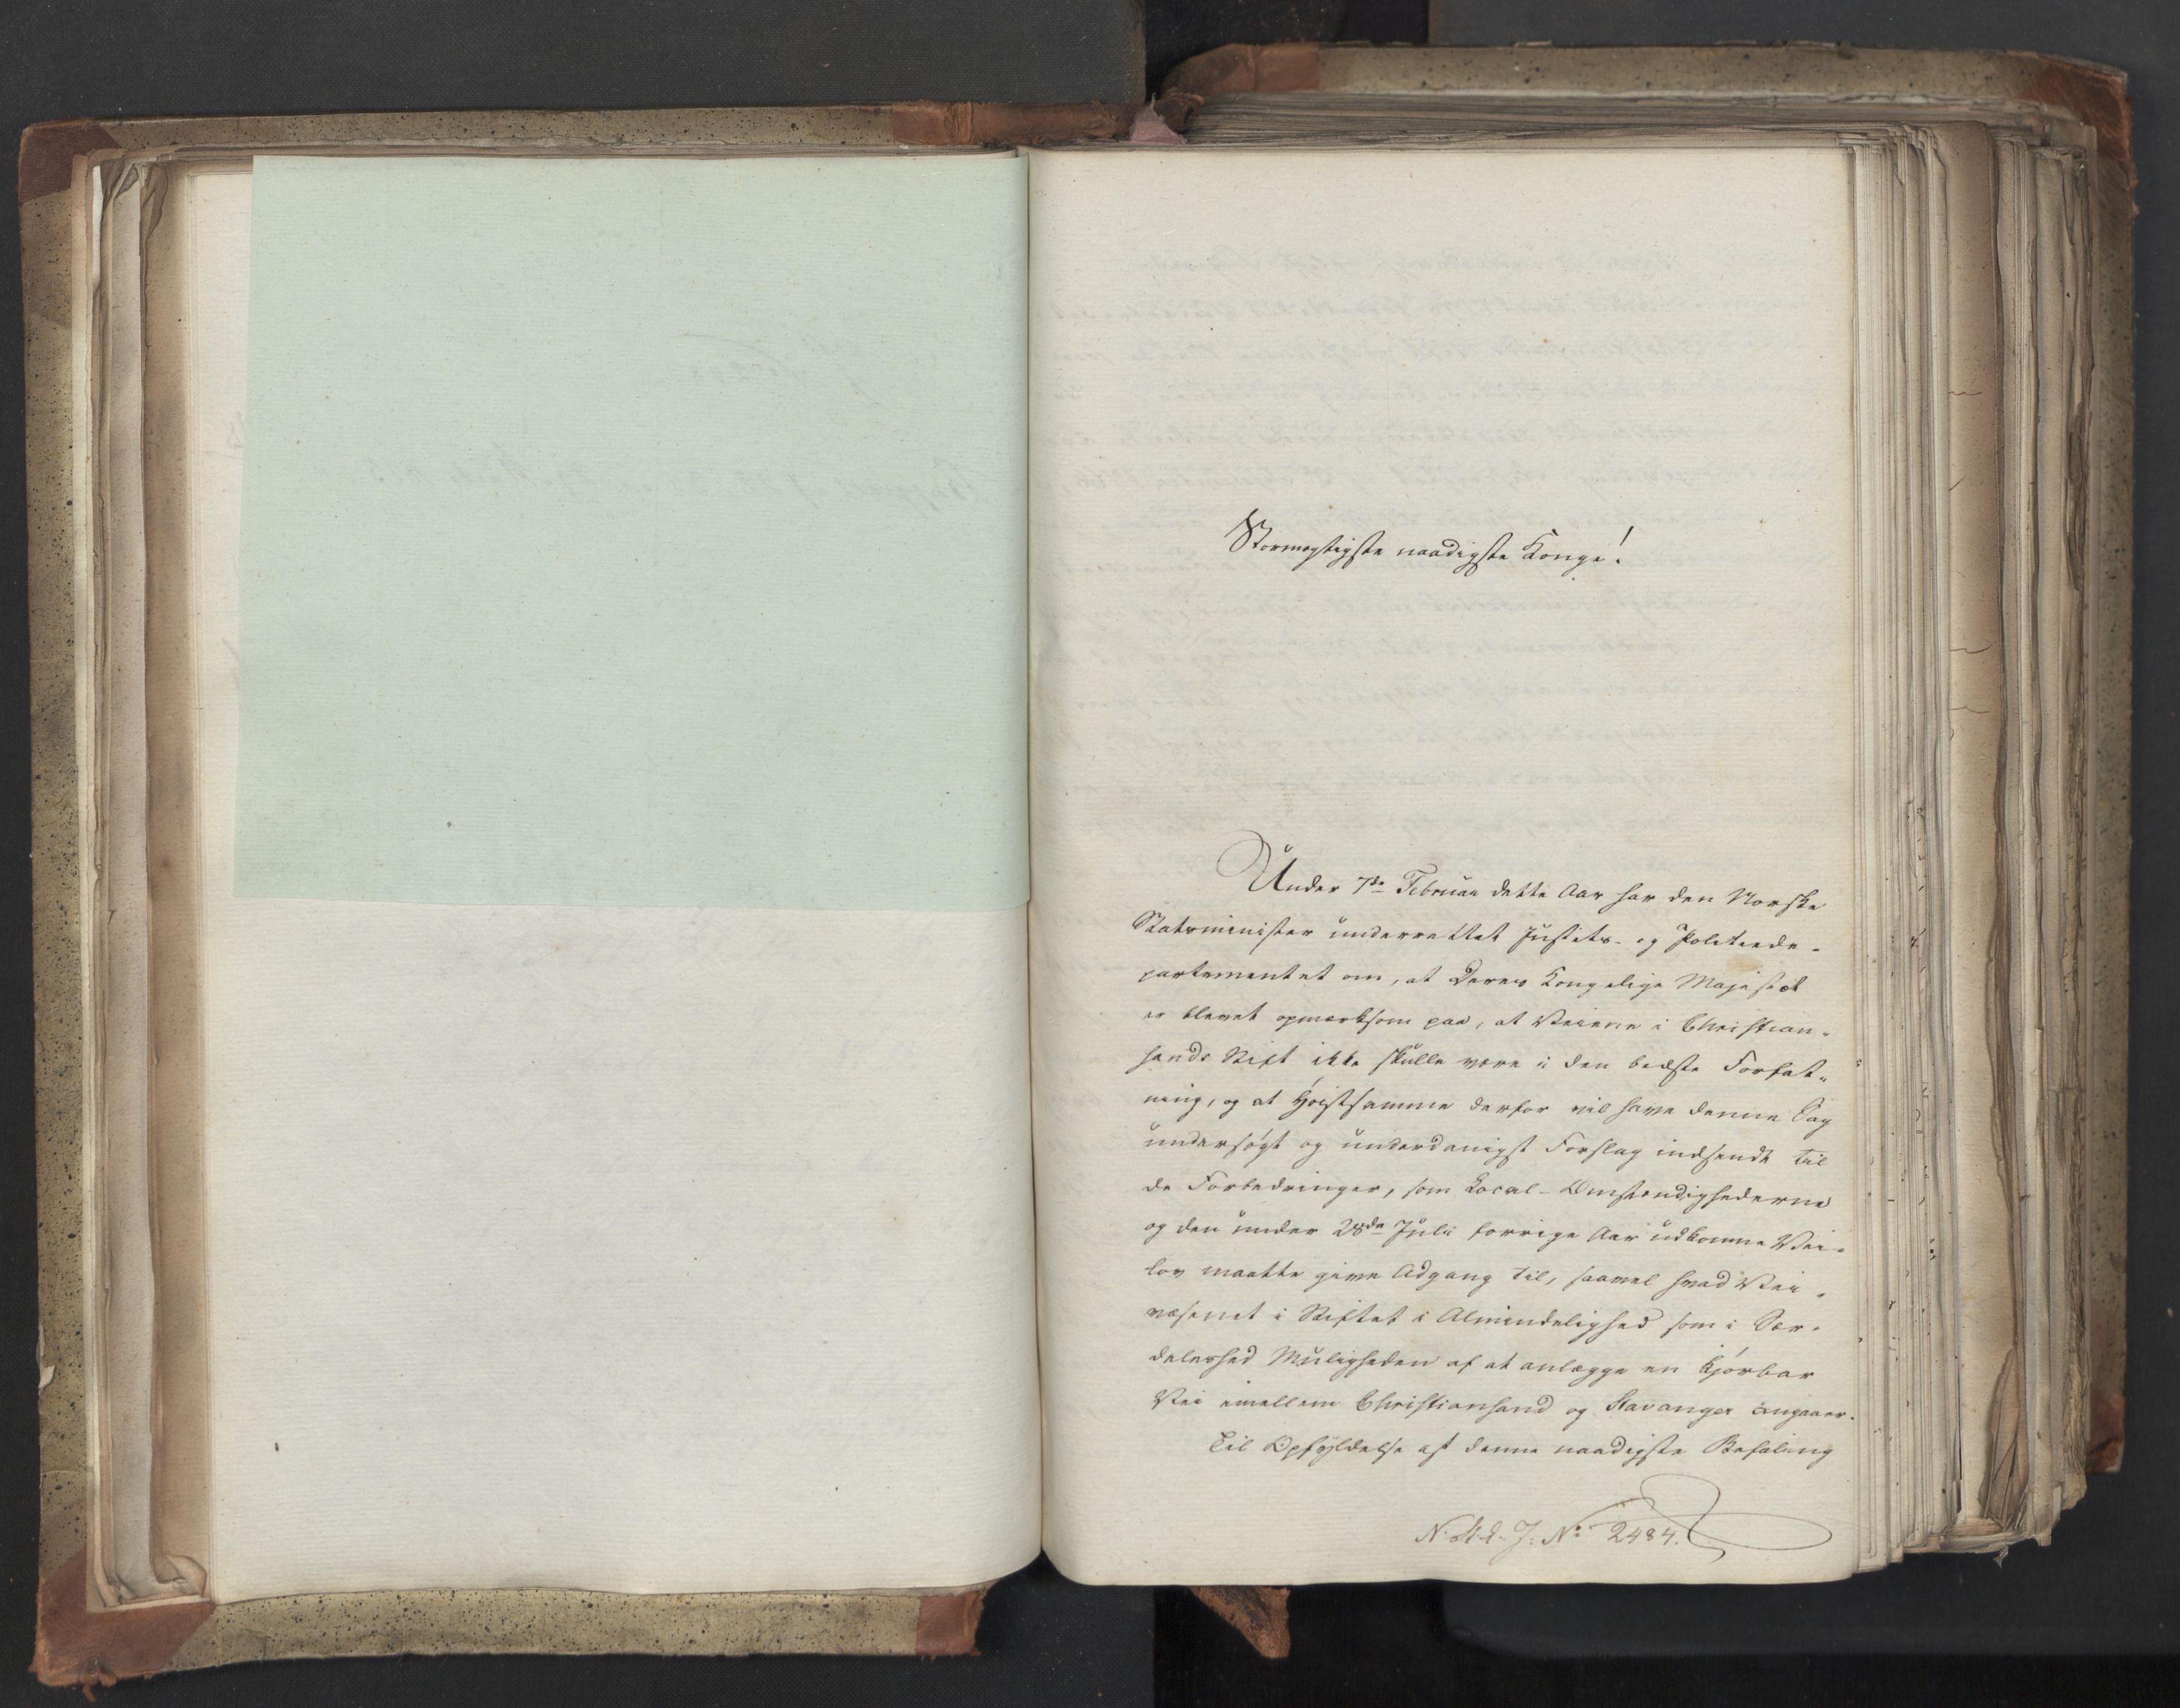 Stormægtigste naadigste Konge!
Under 7de Februar dette Aar har den Norske
Statsminister underrettet Justits- og Politiede-
partementet om, at Deres Kongelige Majestæt
er blevet opmærksom paa, at Veiene i Christian-
sands Stift ikke skulle være i den bedste Forfat-
ning, og at Høistsamme derfor vil have denne Sag
undersøgt og underdanigst Forslag indsendt til
de Forbedringer, som Local-Omstændighederne
og den under 28de Julii forrige Aar udkomne Vei-
lov maatte give Adgang til, saavel hvad Vei-
væsenet i Stiftet i Almindelighed som i Sær-
deleshed Muligheden af at anlægge en kjørbar
Vei imellem Christiansand og Stavanger angaaer.
Til Opfyldelse af denne naadigste Befaling
N. St. S. J. No 2484.